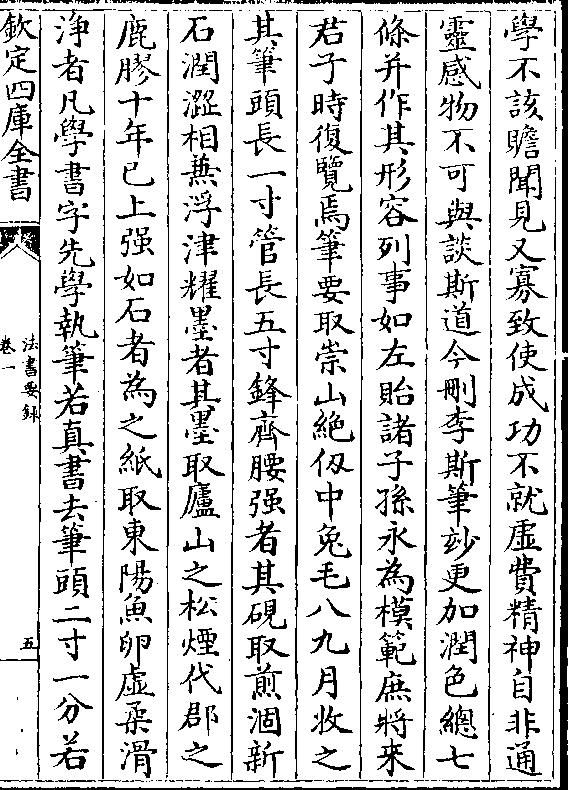 學不該贍聞見又寡致使成功不就虛費精神自非通
靈感物不可與談斯道今刪李斯筆妙更加潤色總七
條并作其形容列事如左貽諸子孫永為模範庶將来
君子時復覽焉筆要取崇山絶仭中兔毛八九月收之
其筆頭長一寸管長五寸鋒齊腰强者其硯取煎涸新
石潤澀相兼浮津耀墨者其墨取廬山之松煙代郡之
鹿膠十年已上强如石者為之紙取東陽魚卵虛柔滑
淨者凡學書字先學執筆若真書去筆頭二寸一分若
欽定四庫全書
法書要録
卷一
五